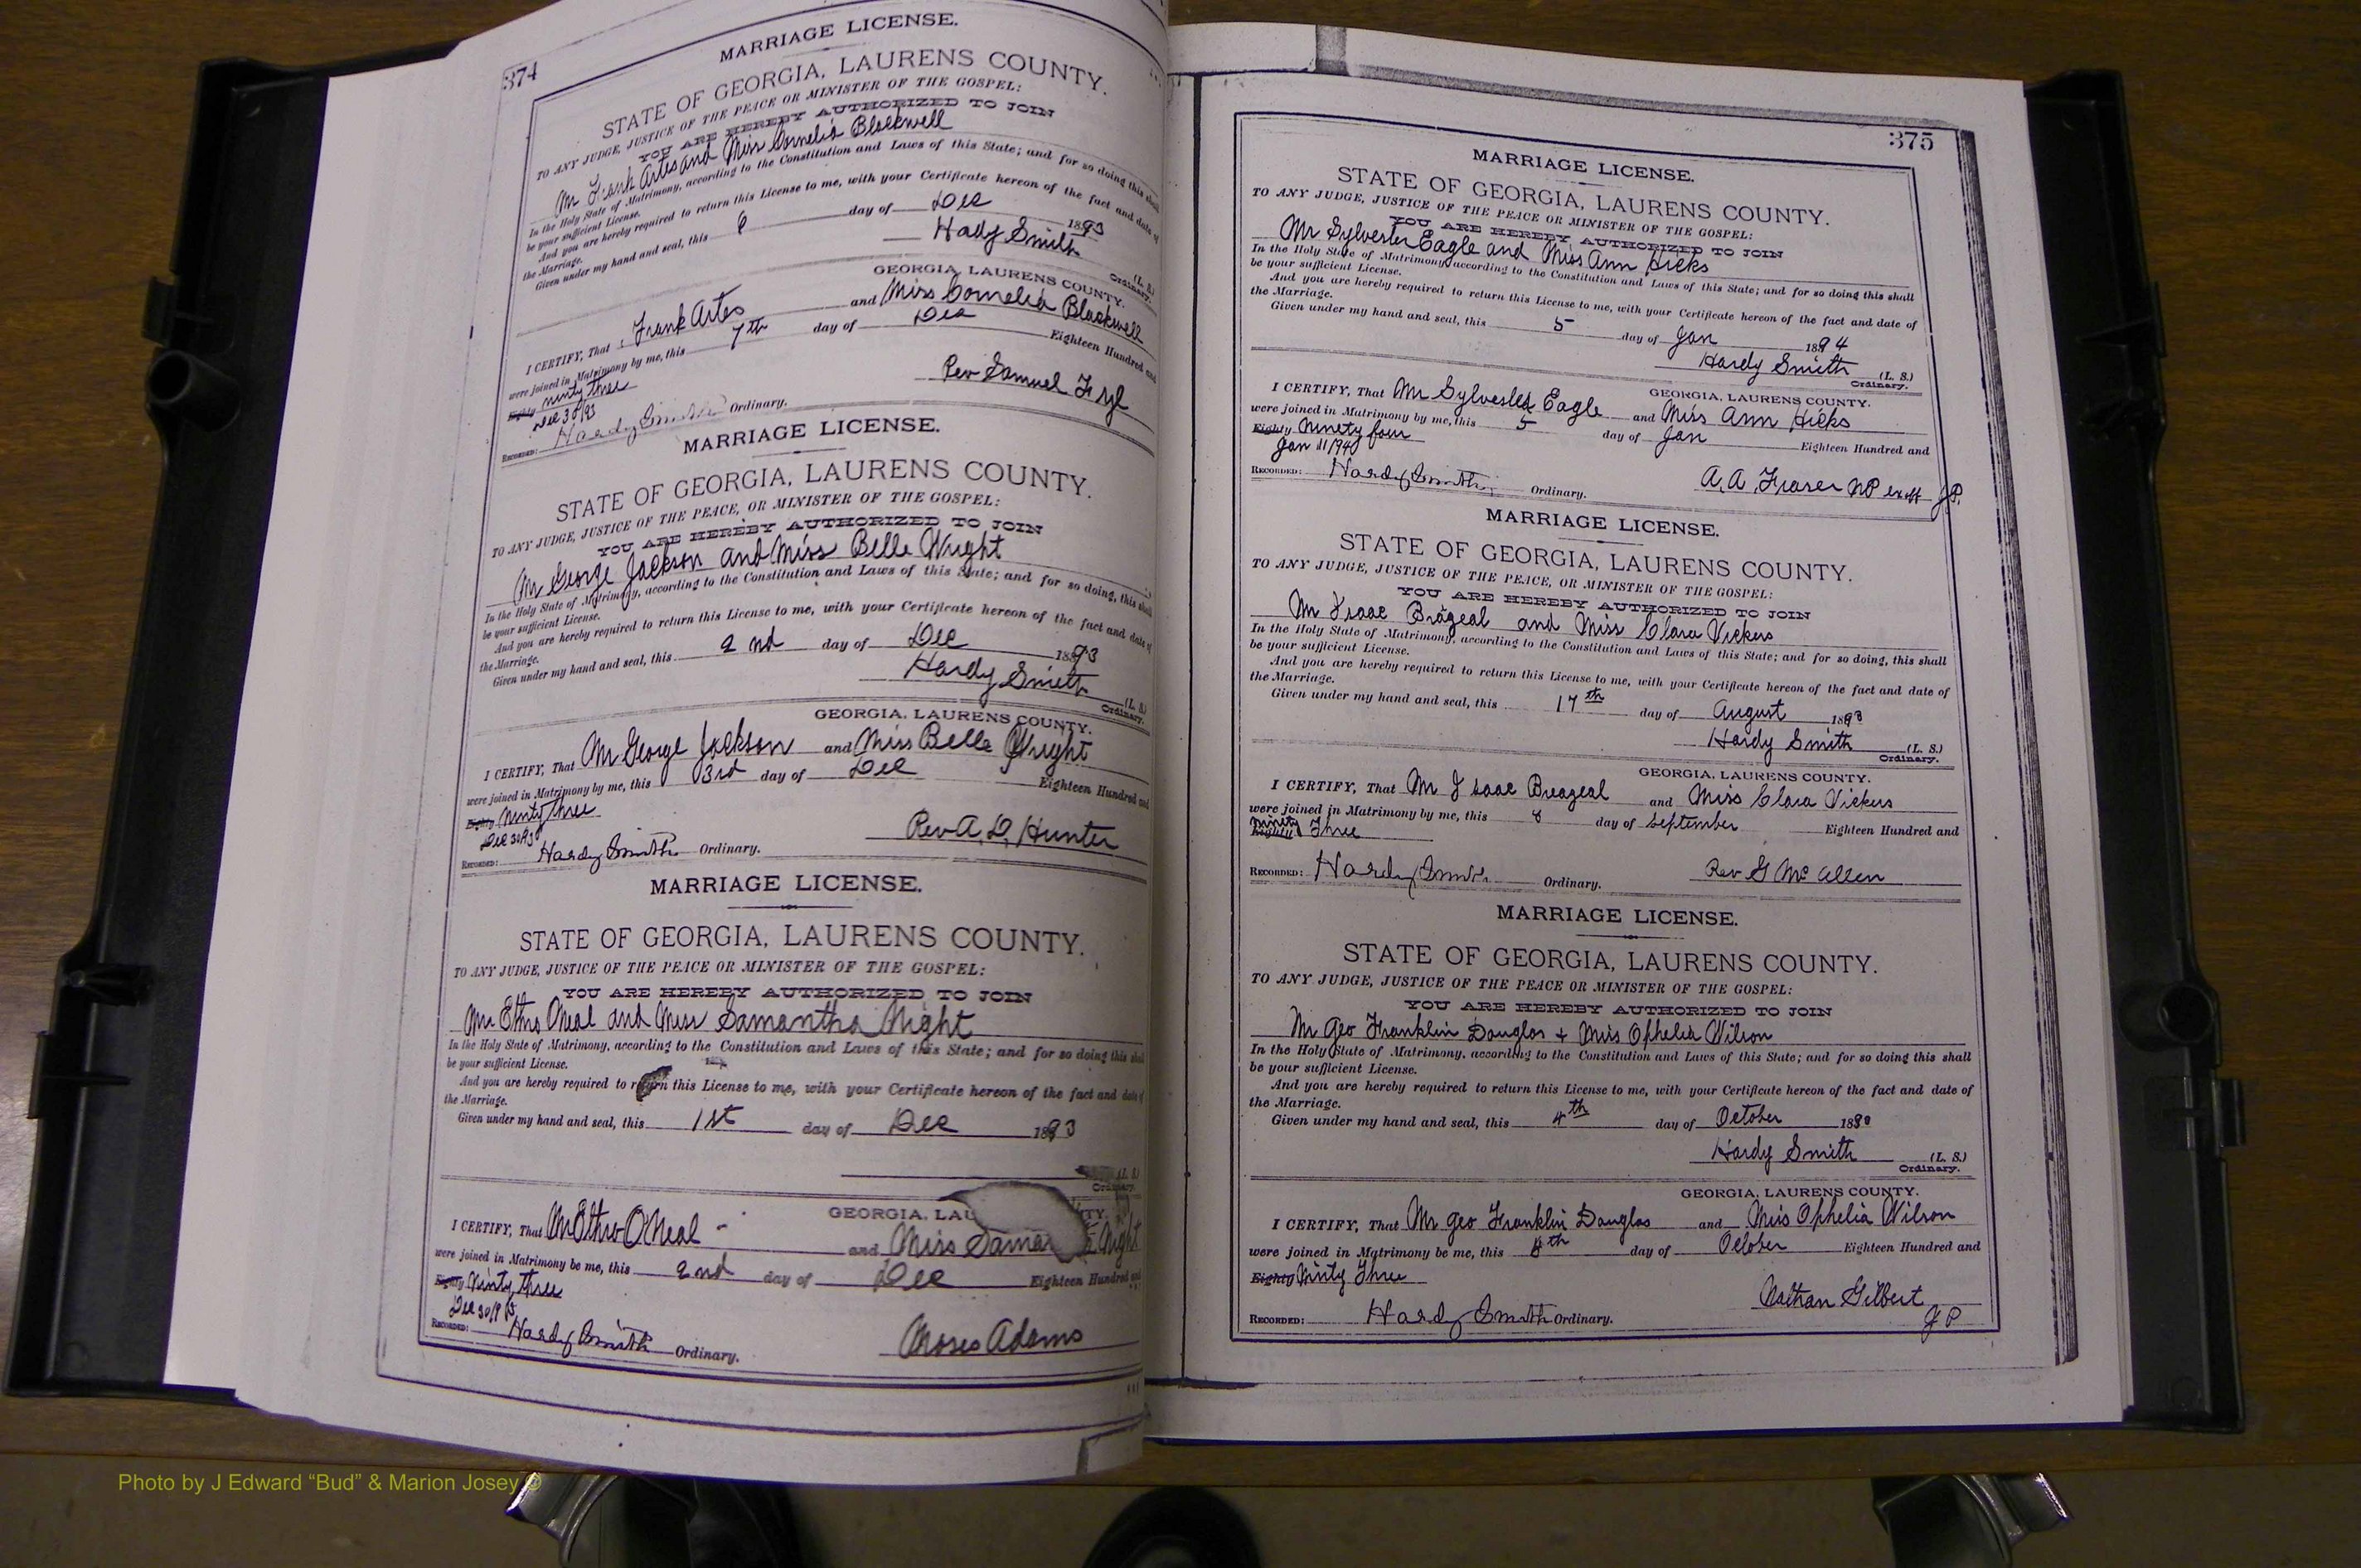 374
MARRIAGE LICENSE.
STATE OF GEORGIA, LAURENS COUNTY.
TO ANY JUDGE, JUSTICE OF THE PEACE OR MINISTER OF THE GOSPEL:
YOU ARE HEREBY AUTHORIZED TO JOIN
Mr Frank Artis and Miss Cornelia Blackwell
In the Holy State of Matrimony, according to the Constitution and Laws of this State; and for so doing this shall
be your sufficient License.
And you are hereby required to return this License to me, with your Certificate hereon of the fact and date of
the Marriage.
Given under my hand and seal, this 6 day of Dec 1893
Hardy Smith (L. S.)
Ordinary.
GEORGIA, LAURENS COUNTY.
I CERTIFY, That Frank Artes and Miss Cornelia Blackwell
were joined in Matrimony by me, this 7th day of Dec Eighteen Hundred and
Eighty ninty three
Dec 30/93
RECORDED: Hardy Smith Ordinary. Rev Samuel
MARRIAGE LICENSE.
STATE OF GEORGIA, LAURENS COUNTY.
TO ANY JUDGE, JUSTICE OF THE PEACE, OR MINISTER OF THE GOSPEL:
YOU ARE HEREBY AUTHORIZED TO JOIN
Mr George Jackson and Miss Belle Wright
In the Holy State of Matrimony, according to the Constitution and Laws of this State; and for so doing, this shall
be your sufficient License.
And you are hereby required to return this License to me, with your Certificate hereon of the fact and date of
the Marriage.
Given under my hand and seal, this 2nd day of Dec 1893
Hardy Smith (L. S.)
Ordinary.
GEORGIA, LAURENS COUNTY.
I CERTIFY, That Mr George Jackson and Miss Belle Wright
were joined in Matrimony by me, this 3rd day of Dec Eighteen Hundred and
Eighty Ninty three
Dec 30/93
RECORDED: Hardy Smith Ordinary. Rev A. D. Hunter
MARRIAGE LICENSE.
STATE OF GEORGIA, LAURENS COUNTY.
TO ANY JUDGE, JUSTICE OF THE PEACE OR MINISTER OF THE GOSPEL:
YOU ARE HEREBY AUTHORIZED TO JOIN
Mr Ethro ONeal and Miss Samantha Night
In the Holy State of Matrimony, according to the Constitution and Laws of this State; and for so doing this shall
be your sufficient License.
And you are hereby required to return this License to me, with your Certificate hereon of the fact and date of
the Marriage.
Given under my hand and seal, this 1st day of Dec 1893
(L. S.)
Ordinary.
GEORGIA, LAU TY.
I CERTIFY, That Mr Ethro O'Neal and Miss Night
were joined in Matrimony be me, this 2nd day of Dec Eighteen Hundred and
Eighty Ninty three
Dec 30/93
RECORDED: Hardy Smith Ordinary. Moses Adams
375
MARRIAGE LICENSE.
STATE OF GEORGIA, LAURENS COUNTY.
TO ANY JUDGE, JUSTICE OF THE PEACE OR MINISTER OF THE GOSPEL:
YOU ARE HEREBY AUTHORIZED TO JOIN
Mr Sylvester Eagle and Miss Ann Hicks
In the Holy State of Matrimony according to the Constitution and Laws of this State; and for so doing this shall
be your sufficient License.
And you are hereby required to return this License to me, with your Certificate hereon of the fact and date of
the Marriage.
Given under my hand and seal, this 5 day of Jan 1894
Hardy Smith (L. S.)
Ordinary.
GEORGIA, LAURENS COUNTY.
I CERTIFY, That Mr Sylvester Eagle and Miss Ann Hicks
were joined in Matrimony by me, this 5 day of Jan Eighteen Hundred and
Eighty Ninety four
Jan 11/94
RECORDED: Hardy Smith Ordinary. A. A. Fraser NP exoff J.P.
MARRIAGE LICENSE.
STATE OF GEORGIA, LAURENS COUNTY.
TO ANY JUDGE, JUSTICE OF THE PEACE, OR MINISTER OF THE GOSPEL:
YOU ARE HEREBY AUTHORIZED TO JOIN
Mr Isaac Brageal and Miss Clara Vickers
In the Holy State of Matrimony, according to the Constitution and Laws of this State; and for so doing, this shall
be your sufficient License.
And you are hereby required to return this License to me, with your Certificate hereon of the fact and date of
the Marriage.
Given under my hand and seal, this 17th day of August 1893
Hardy Smith (L. S.)
Ordinary.
GEORGIA, LAURENS COUNTY.
I CERTIFY, That Mr Isaac Breageal and Miss Clara Vickers
were joined in Matrimony by me, this 8 day of September Eighteen Hundred and
ninety
Eighty Three
RECORDED: Hardy Smith Ordinary. Rev G McAllen
MARRIAGE LICENSE.
STATE OF GEORGIA, LAURENS COUNTY.
TO ANY JUDGE, JUSTICE OF THE PEACE OR MINISTER OF THE GOSPEL:
YOU ARE HEREBY AUTHORIZED TO JOIN
Mr Geo Franklin Douglas + Miss Ophelia Wilson
In the Holy State of Matrimony, according to the Constitution and Laws of this State; and for so doing this shall
be your sufficient License.
And you are hereby required to return this License to me, with your Certificate hereon of the fact and date of
the Marriage.
Given under my hand and seal, this 4th day of October 1893
Hardy Smith (L. S.)
Ordinary.
GEORGIA, LAURENS COUNTY.
I CERTIFY, That Mr Geo Franklin Douglas and Miss Ophelia Wilson
were joined in Matrimony be me, this 8th day of October Eighteen Hundred and
Eighty Ninty Three
Nathan Gilbert
RECORDED: Hardy Smith Ordinary. J P
Photo by J Edward “Bud” & Marion Josey ©